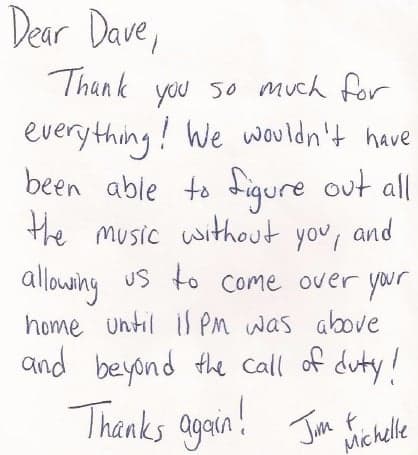 Dear Dave,
Thank you so much for
everything! We wouldn't have
been able to figure out all
the music without you, and
allowing us to come over your
home until 11 PM was above
and beyond the call of duty!
Thanks again! Jim +
Michelle